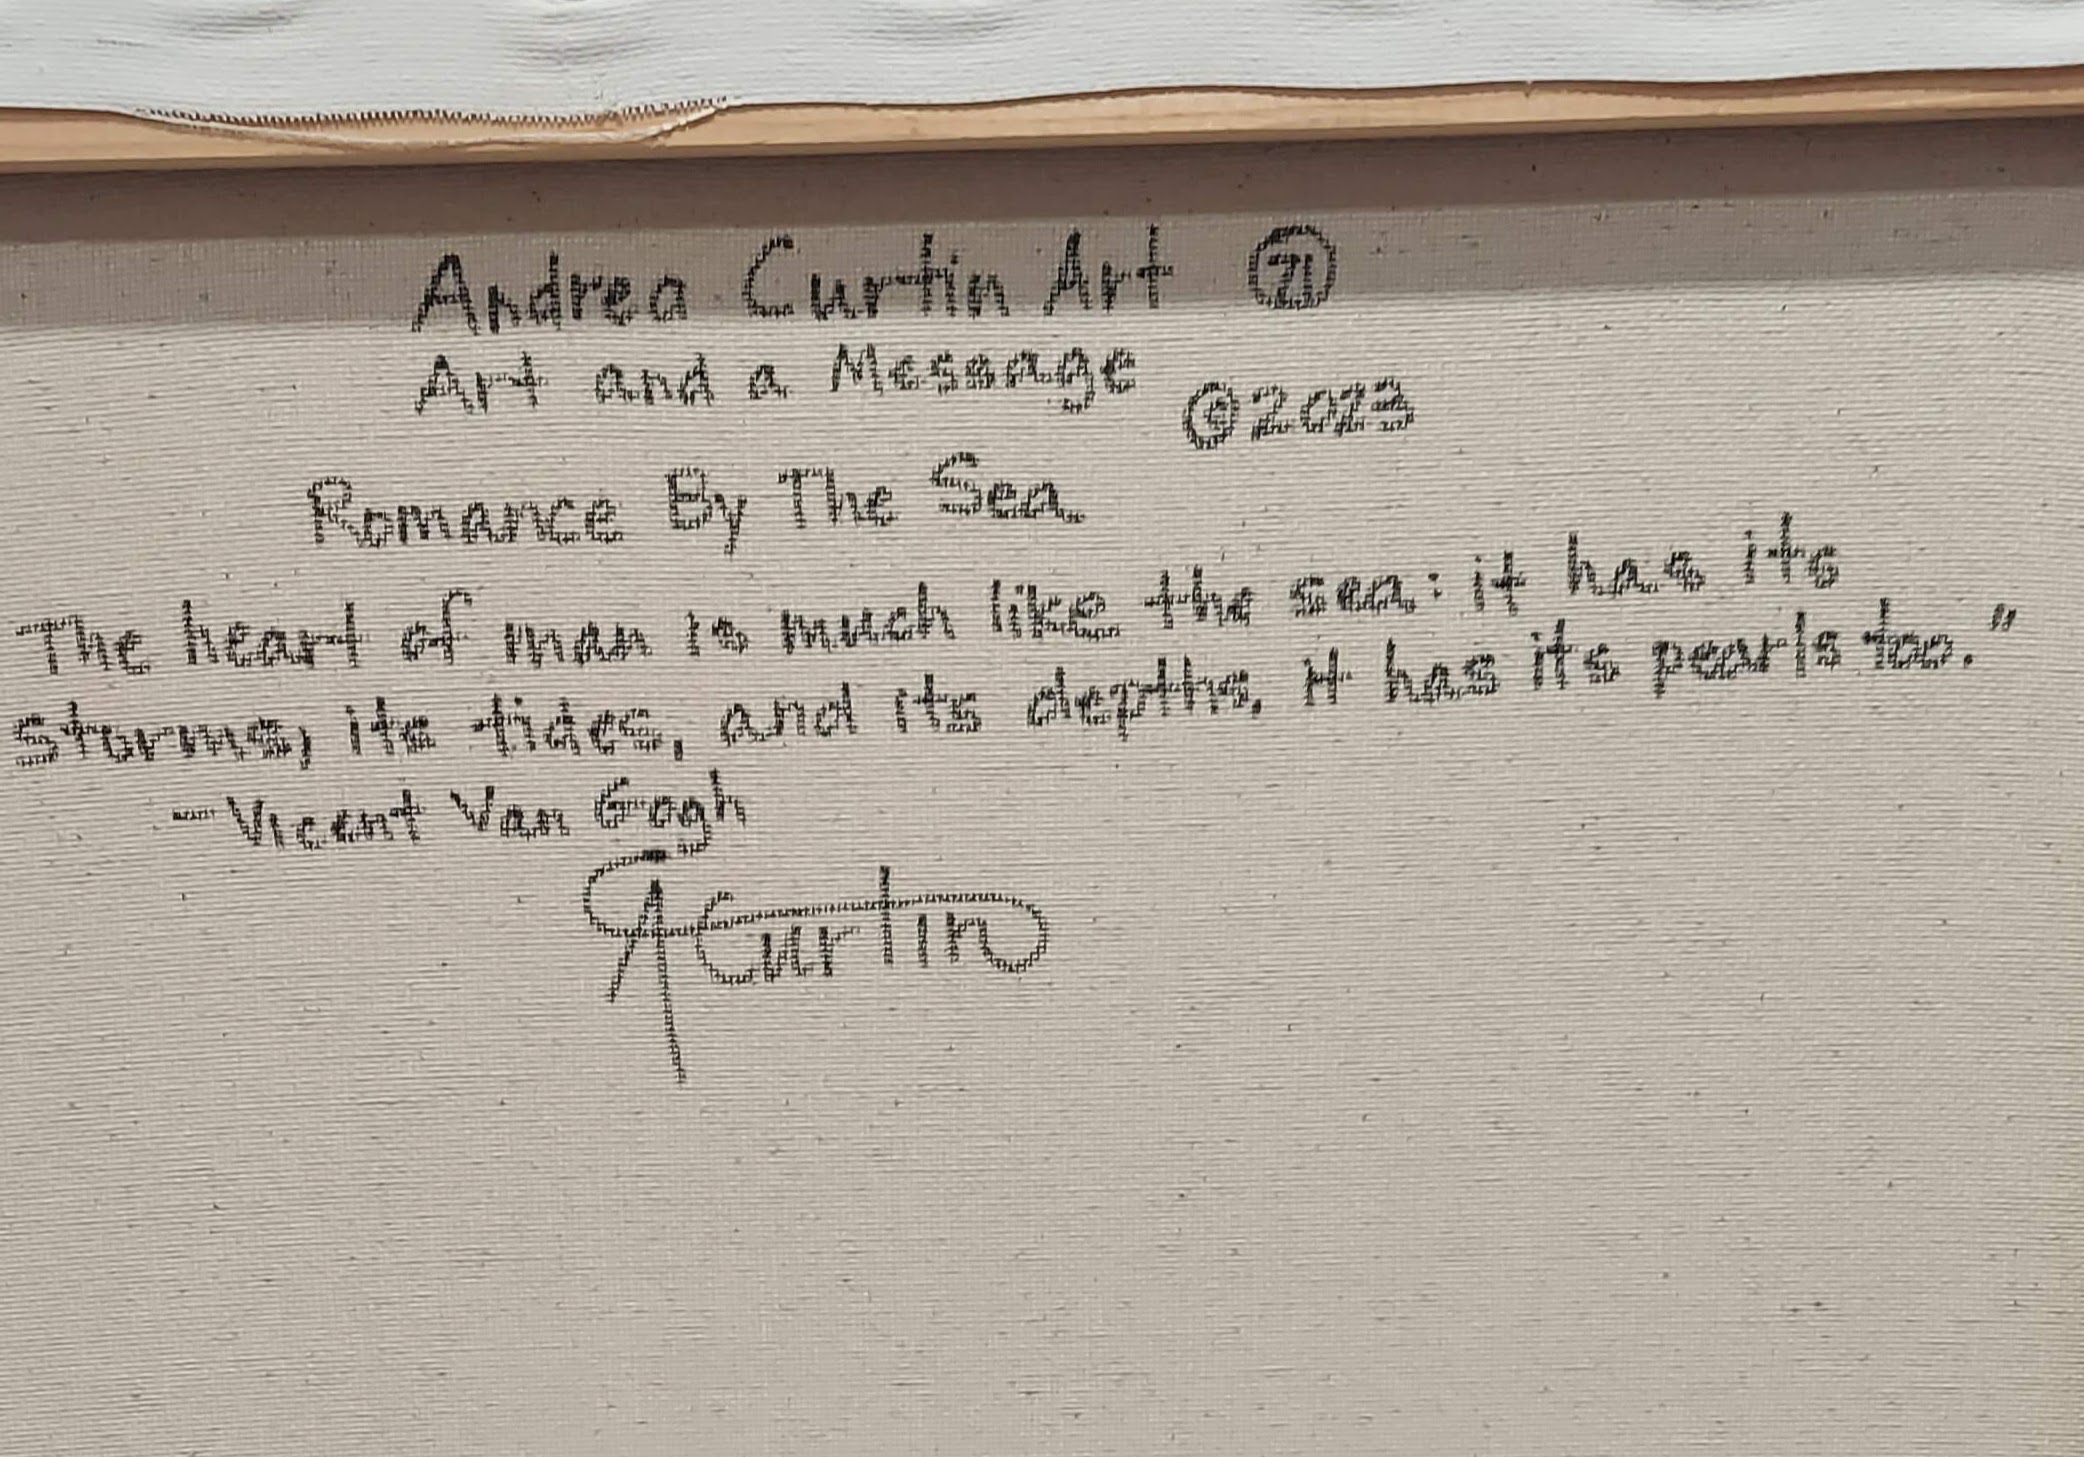 Andrea Curtin Art 71
Art and a Message
©2023
Romance By The Sea
The heart of man is much like the sea: it has its
storms, its tides, and its depths, it has its pearls too."
- Vicent Van Gogh
Curtin